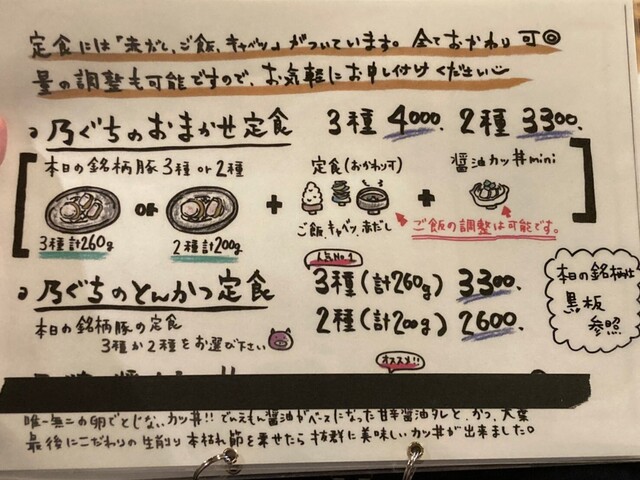 定食には「赤だし、ご飯、キャベツ」がついています。全ておかわり可◎
量の調整も可能ですので、お気軽にお申し付けください
乃ぐちのおまかせ定食 3種 4000. 2種 3300.
本日の銘柄豚3種or2種
定食(おかわり可)
醤油カツ丼mini
or + +
3種計260g
2種計200g
ご飯、キャベツ、赤だし
ご飯の調整は可能です。
人気No.1
乃ぐちのとんかつ定食 3種(計260g) 3300.
2種(計200g) 2600.
本日の銘柄豚の定食
3種か2種をお選び下さい
本日の銘柄は
黒板
参照
オススメ!!
唯一無二の卵でとじないカツ丼!!でいえもん醤油がベースになった甘辛醤油タレと、かつ、大葉
最後にこだわりの生削り本枯れ節を乗せたら抜群に美味しいカツ丼が出来ました。